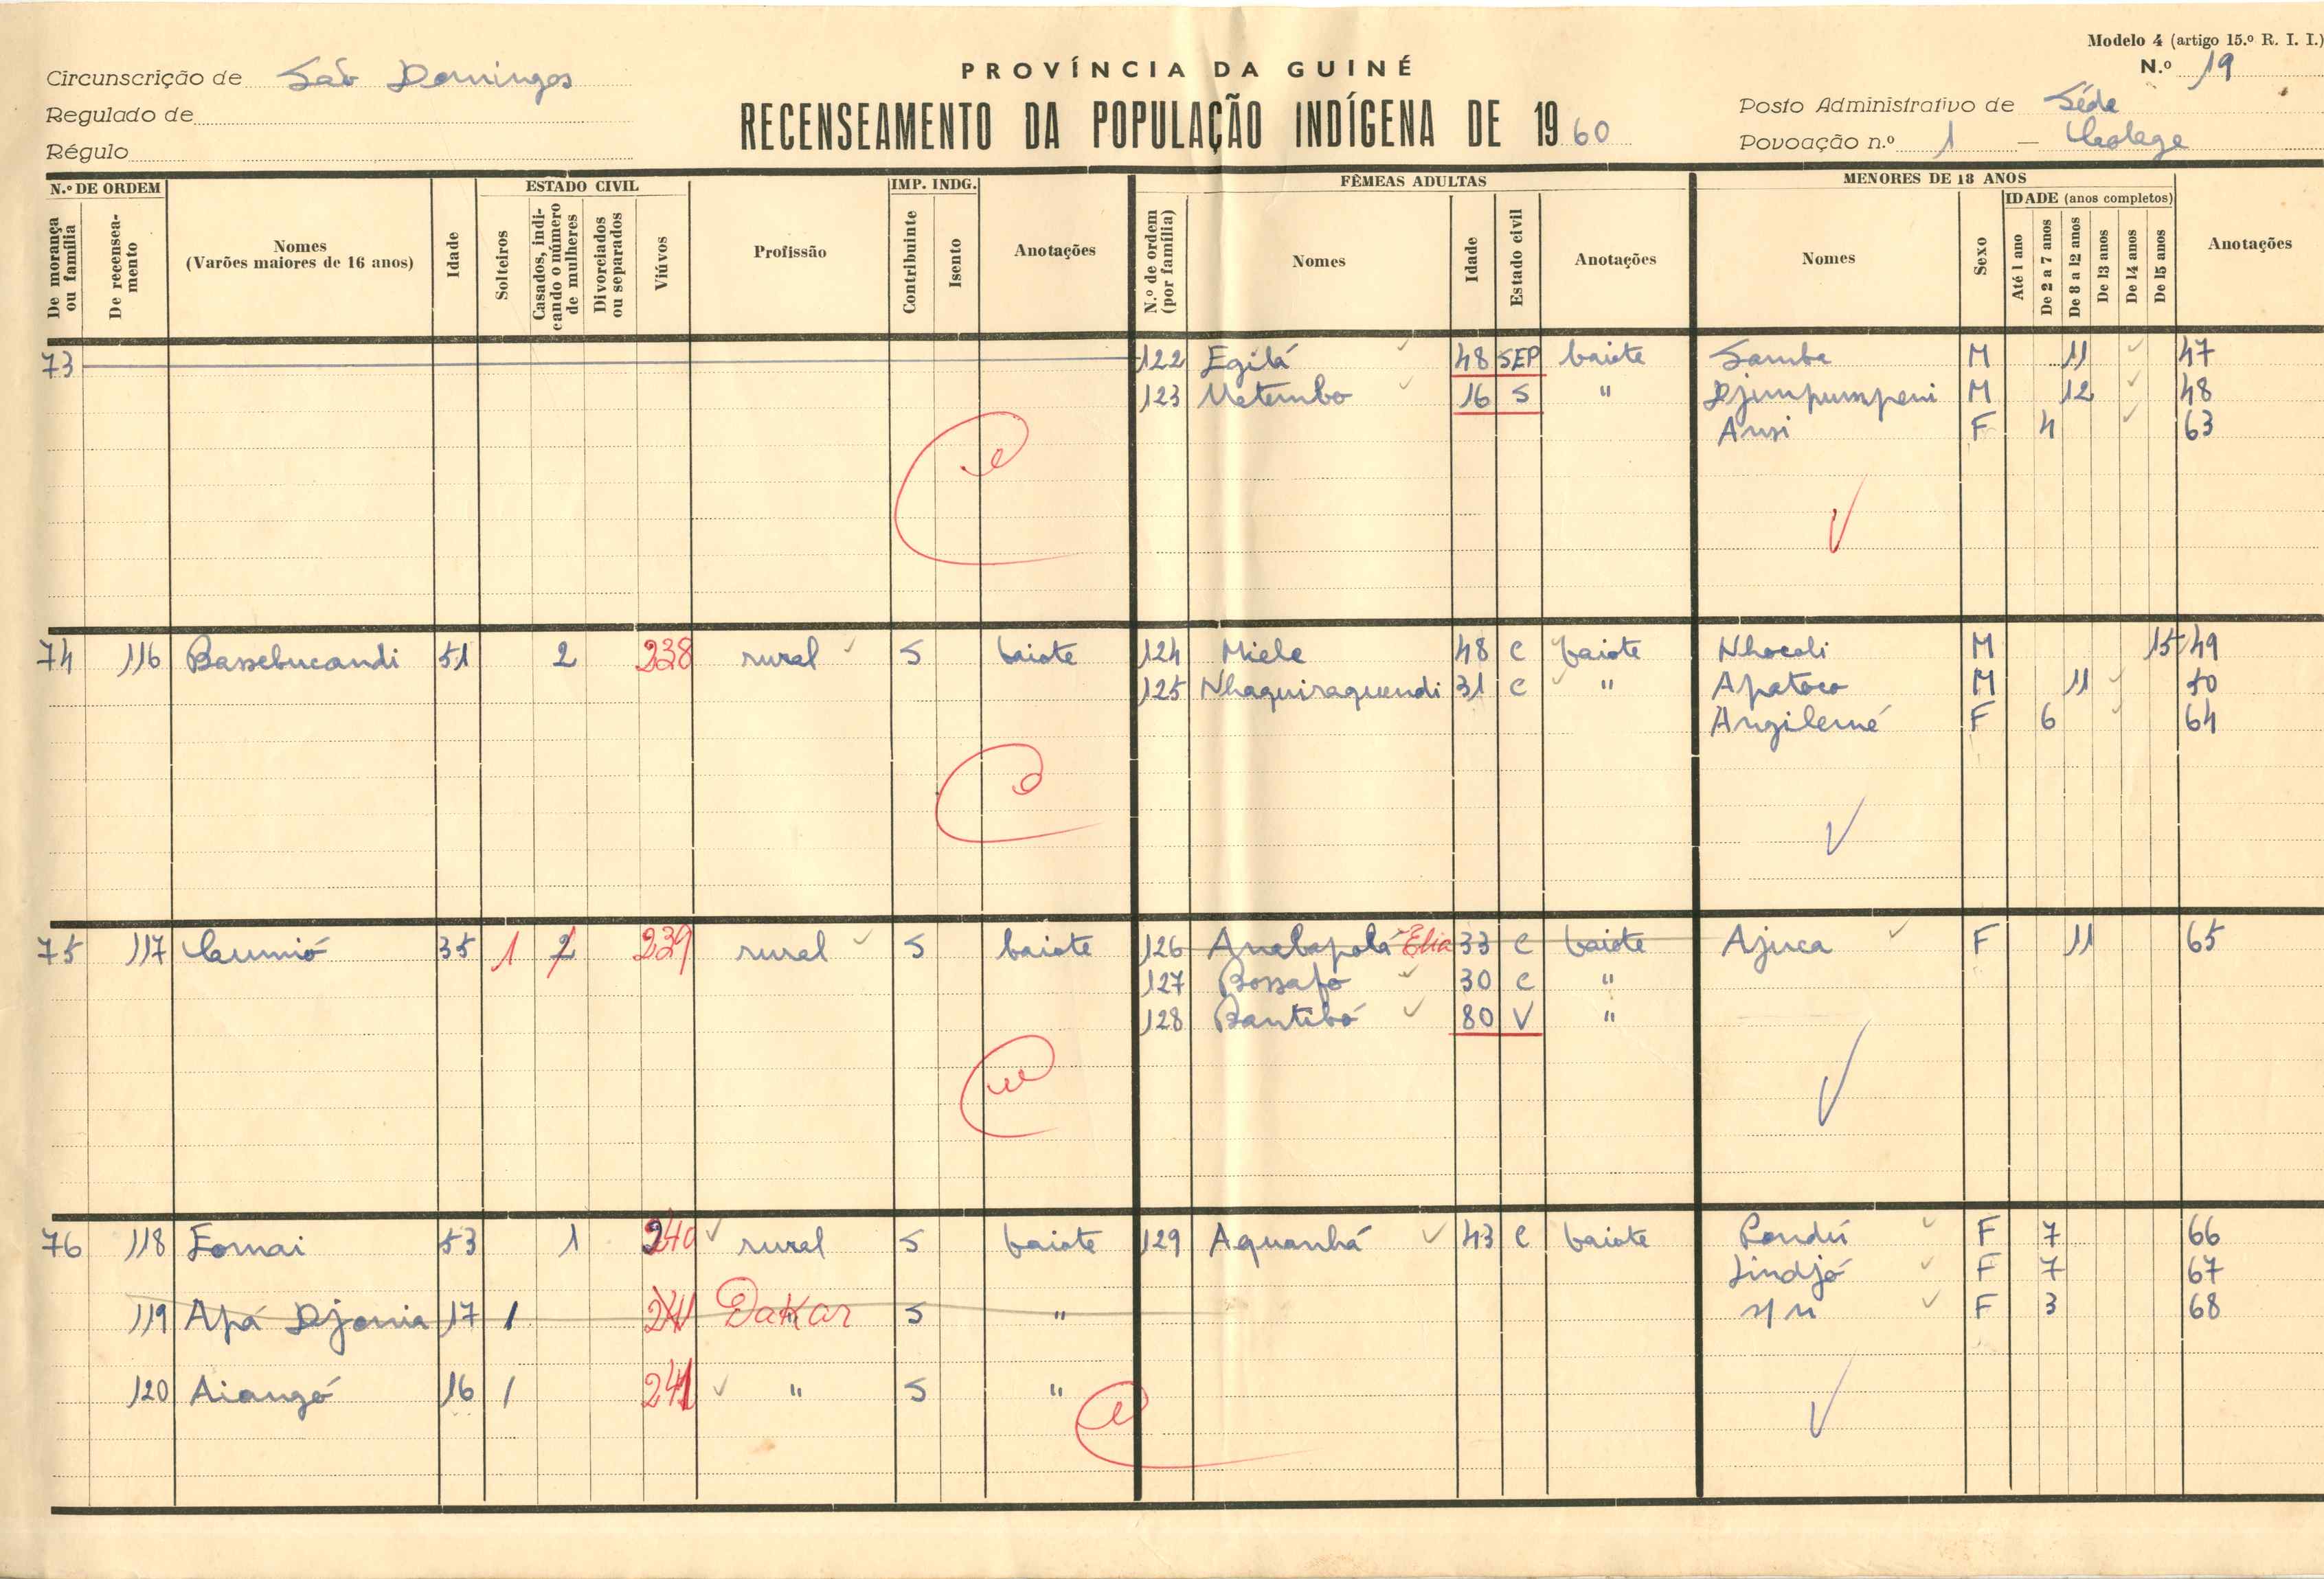 Modelo 4 (artigo 15.º R. I. I.)
Circunscrição de São Domingos
PROVÍNCIA DA GUINÉ
N.º 19
Regulado de
RECENSEAMENTO DA POPULAÇÃO INDÍGENA DE 1960
Posto Administrativo de Séde
Régulo
Povoação n.º 1 —
N.º DE ORDEM
ESTADO CIVIL
IMP. INDG.
FÊMEAS ADULTAS
MENORES DE 18 ANOS
De morança ou família
De recenseamento
Nomes
(Varões maiores de 16 anos)
Idade
Solteiros
Casados, indicando o número de mulheres
Divorciados ou separados
Viúvos
Profissão
Contribuinte
Isento
Anotações
N.º de ordem (por família)
Nomes
Idade
Estado civil
Anotações
Nomes
Sexo
IDADE (anos completos)
Até 1 ano
De 2 a 7 anos
De 8 a 12 anos
De 13 anos
De 14 anos
De 15 anos
Anotações
73 122 Egilá 48 SEP baiote Samba M 11 47
123 Metembo 16 S " Djumpumpeni M 12 48
Ansi F 4 63
74 116 Bassebucandi 51 2 238 rural S baiote 124 Miele 48 C baiote Nhocoli M 15 49
125 Nhaquiraquendi 31 C " Apatoco M 11 50
Angilerné F 6 64
75 117 35 1 2 239 rural S baiote 126 Anabapolá Elia 33 C baiote Ajuca F 11 65
127 Bossafo 30 C "
128 Bantibó 80 V "
76 118 Fomai 53 1 240 rural S baiote 129 Aquanhá 43 C baiote Pondú F 7 66
Jindjó F 7 67
119 Apá Djonia 17 1 241 Dakar S " s/n F 3 68
120 Aiangó 16 1 241 " S "